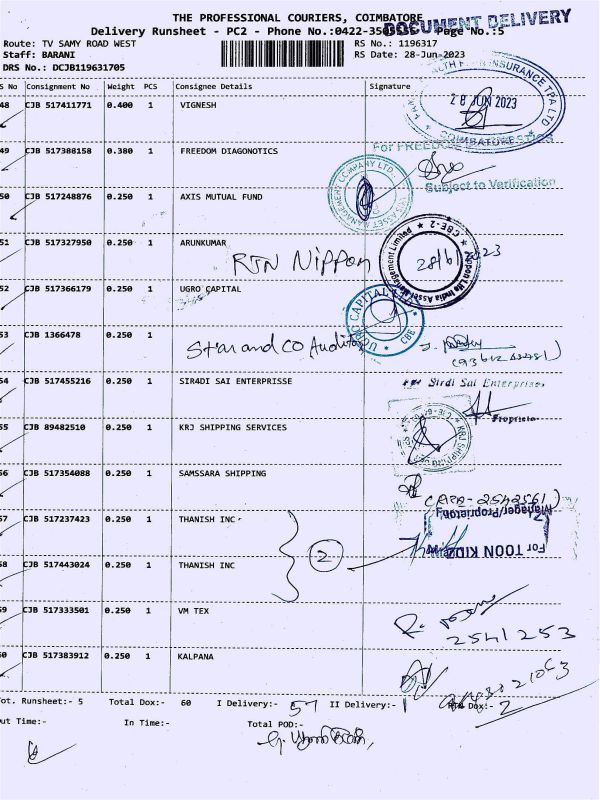 THE PROFESSIONAL COURIERS, COIMBATORE
DOCUMENT DELIVERY
Delivery Runsheet - PC2 - Phone No.:0422- Page No.:5
Route: TV SAMY ROAD WEST RS No.: 1196317
Staff: BARANI RS Date: 28-Jun-2023
DRS No.: DCJB119631705
S No Consignment No Weight PCS Consignee Details Signature
48 CJB 517411771 0.400 1 VIGNESH
INSURANCE TPA LTD
28 JUN 2023
COIMBATORE
For FREEDOM DIAGNOSTICS
49 CJB 517388158 0.380 1 FREEDOM DIAGONOTICS
Subject to Verification
50 CJB 517248876 0.250 1 AXIS MUTUAL FUND
ASSET MANAGEMENT COMPANY LTD
51 CJB 517327950 0.250 1 ARUNKUMAR
Nippon Life India Asset Management Limited
CBE-2
28/6/2023
Nippon
52 CJB 517366179 0.250 1 UGRO CAPITAL
UGRO CAPITAL LTD
CBE
53 CJB 1366478 0.250 1
Star and CO Auditor
54 CJB 517455216 0.250 1 SIRADI SAI ENTERPRISSE
Sirdi Sai Enterprises
Proprietor
55 CJB 89482510 0.250 1 KRJ SHIPPING SERVICES
KRJ SHIPPING
56 CJB 517354088 0.250 1 SAMSSARA SHIPPING
57 CJB 517237423 0.250 1 THANISH INC
For TOON KIDZ
Manager/Proprietor
2
58 CJB 517443024 0.250 1 THANISH INC
59 CJB 517333501 0.250 1 VM TEX
2541253
60 CJB 517383912 0.250 1 KALPANA
Tot. Runsheet:- 5 Total Dox:- 60 I Delivery:- 57 II Delivery:- 1 Dox:- 2
Out Time:- In Time:- Total POD:-